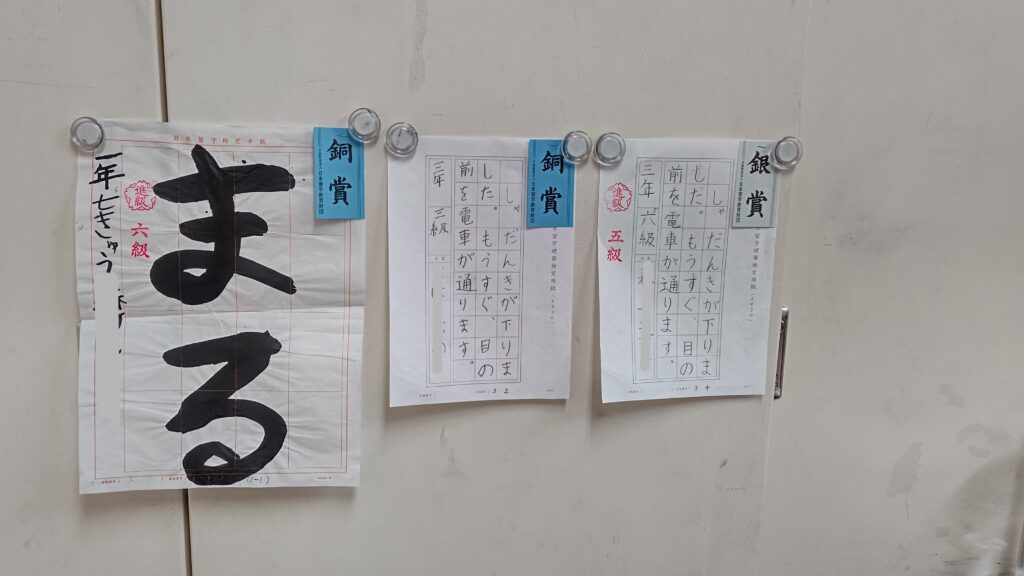 日本習字検定半紙
まる
進級
六級
一年 七きゅう
銅賞
しゃだんきが下りま
した。もうすぐ、目の
前を電車が通ります。
三年 三級
銅賞
3 2
しゃだんきが下りま
した。もうすぐ、目の
前を電車が通ります。
三年 六級
進級
五級
銀賞
3 4